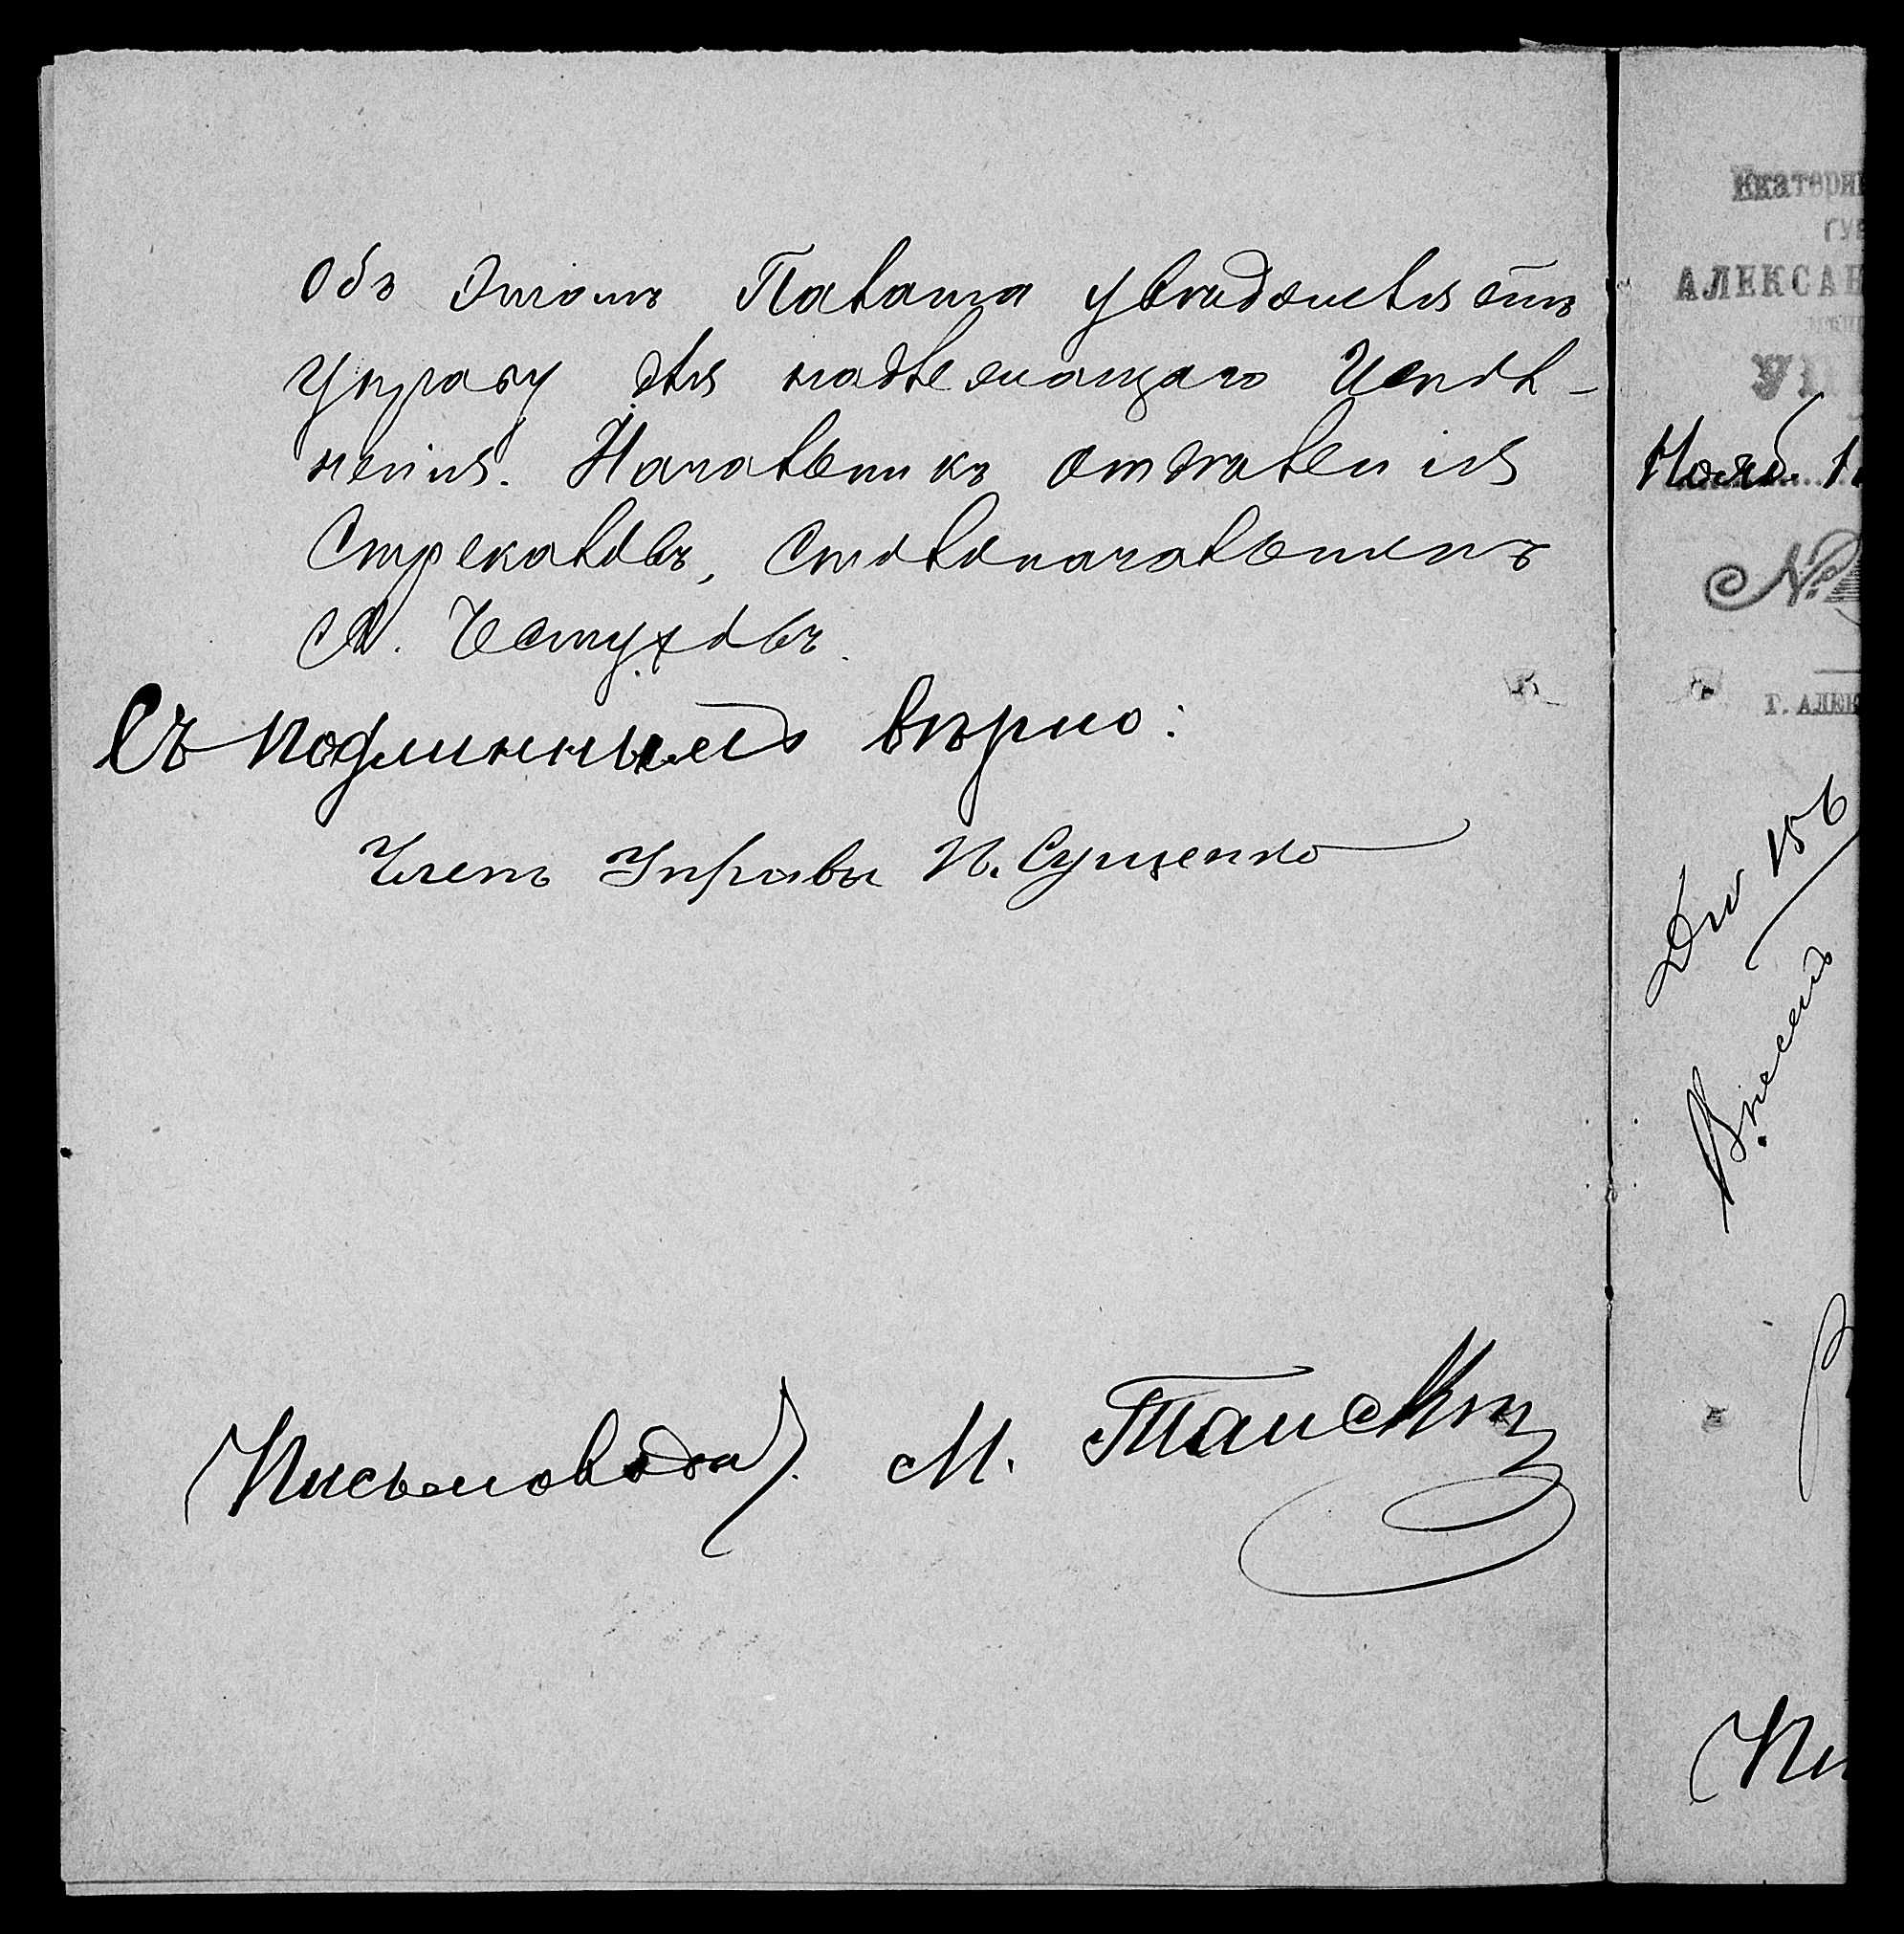 Объ этомъ Палата увѣдомляетъ
Управу для надлежащаго испол-
ненія. Начальникъ отдѣленія
Стрекаловъ, Столоначальникъ
А. Вестуховъ.
Съ подлиннымъ вѣрно:
Членъ Управы И. Сущенко
Письмовода). М.
Екатери
ГУБ
АЛЕКСАН
УП
Нояб. 1
№
Г. АЛЕК